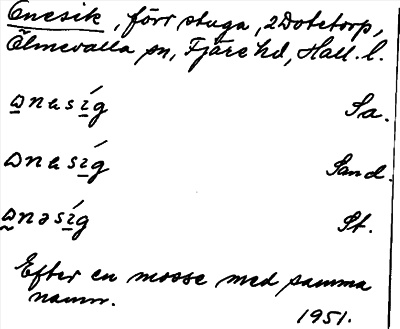 Enesik, förr stuga, 2 Dotetorp,
Ölmevalla sn, Fjäre hd, Hall. l.
ɷnɐsíg Sa.
ɷnɐsíg Sand.
ɷnəsíg St.
Efter en mosse med samma
namn.
1951.